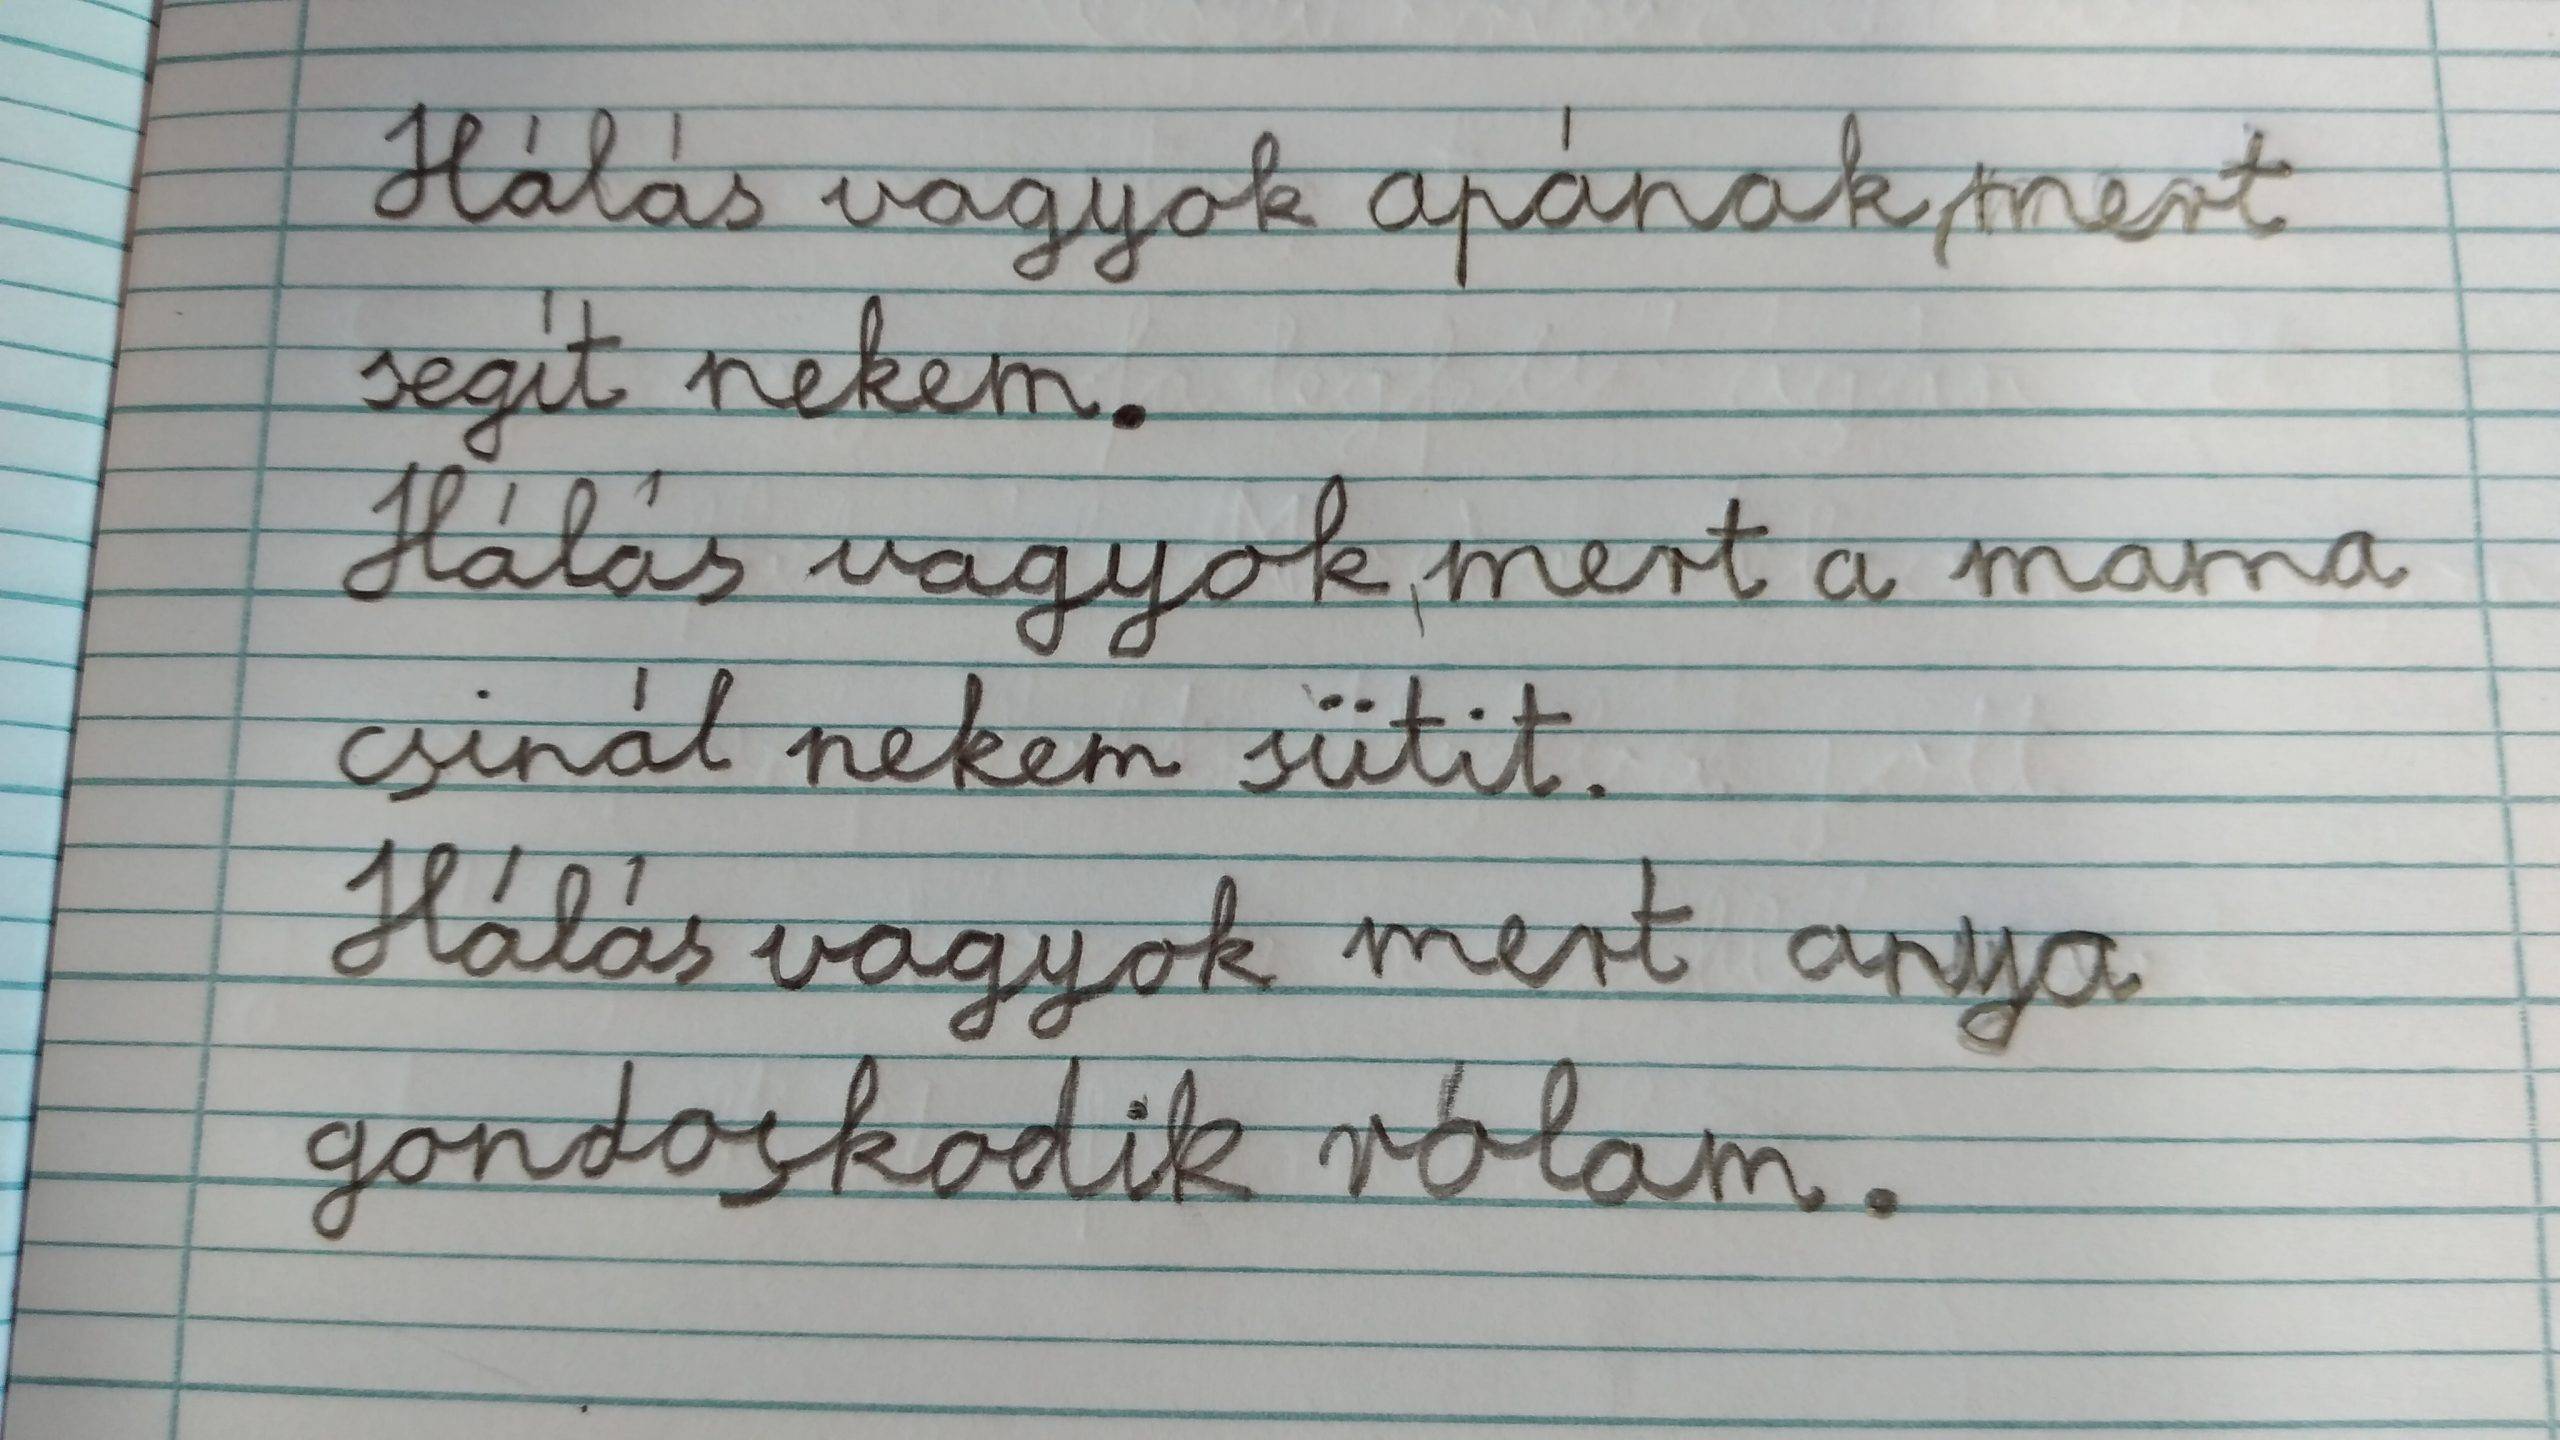 Hálás vagyok apának, mert
segít nekem.
Hálás vagyok, mert a mama
csinál nekem sütit.
Hálás vagyok mert anya
gondoskodik rólam.